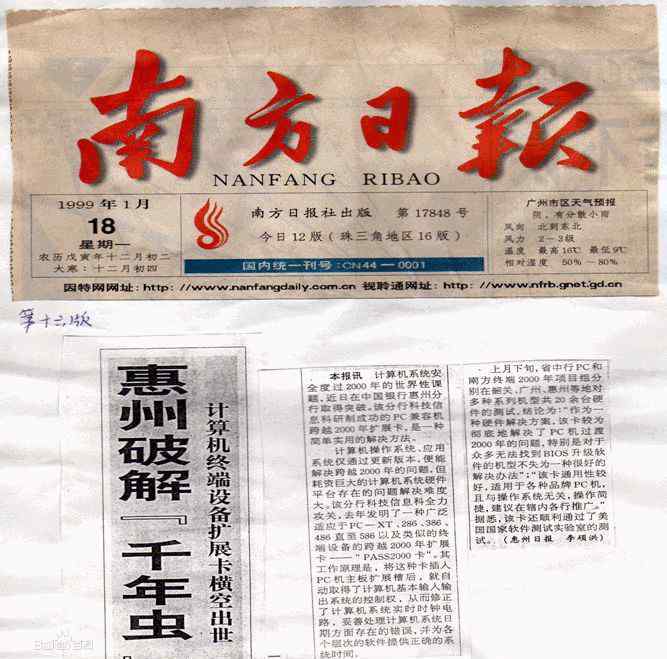 南方日报
NANFANG RIBAO
1999年1月
18
星期一
农历戊寅年十二月初二
大寒：十二月初四
南方日报社出版 第17848号
今日12版(珠三角地区16版)
国内统一刊号：CN44—0001
广州市区天气预报
阴，有分散小雨
风向 北到东北
风力 2—3级
温度 最高16℃ 最低9℃
相对湿度 50%～80%
因特网网址：http：//www.nanfangdaily.com.cn 视聆通网址：http：//www.nfrb.gnet.gd.cn
第十三版
惠州破解『千年虫
计算机终端设备扩展卡横空出世
本报讯 计算机系统安
全度过2000年的世界性课
题，近日在中国银行惠州分
行取得突破。该分行科技信
息科研制成功的PC兼容机
跨越2000年扩展卡，是一种
简单实用的解决方法。
计算机操作系统、应用
系统仅通过更新版本，便能
解决跨越2000年的问题，但
耗资巨大的计算机系统硬件
平台存在的问题解决难度
大。该分行科技信息科全力
攻关，去年发明了一种广泛
适应于PC—XT、286、386、
486直至586以及类似的终
端设备的跨越2000年扩展
卡——“PASS2000卡”。其
工作原理是，将这种卡插入
PC机主板扩展槽后，就自
动取得了计算机基本输入输
出系统的控制权，从而修正
了计算机系统实时时钟电
路，妥善处理计算机系统日
期方面存在的错误，并为各
个层次的软件提供正确的系
统时间。
上月下旬，省中行PC和
南方终端2000年项目组分
别在韶关、广州、惠州等地对
多种系列机型共20余台硬
件的测试，结论为：“作为一
种硬件解决方案，该卡较为
彻底地解决了PC机过度
2000年的问题，特别是对于
众多无法找到BIOS升级软
件的机型不失为一种很好的
解决办法”；“该卡通用性较
好，适用于各种品牌PC机，
且与操作系统无关，操作简
捷，建议在辖内各行推广。”
据悉，该卡还顺利通过了美
国国家软件测试实验室的测
试。(惠州日报 李颂洪)
Baidu百科